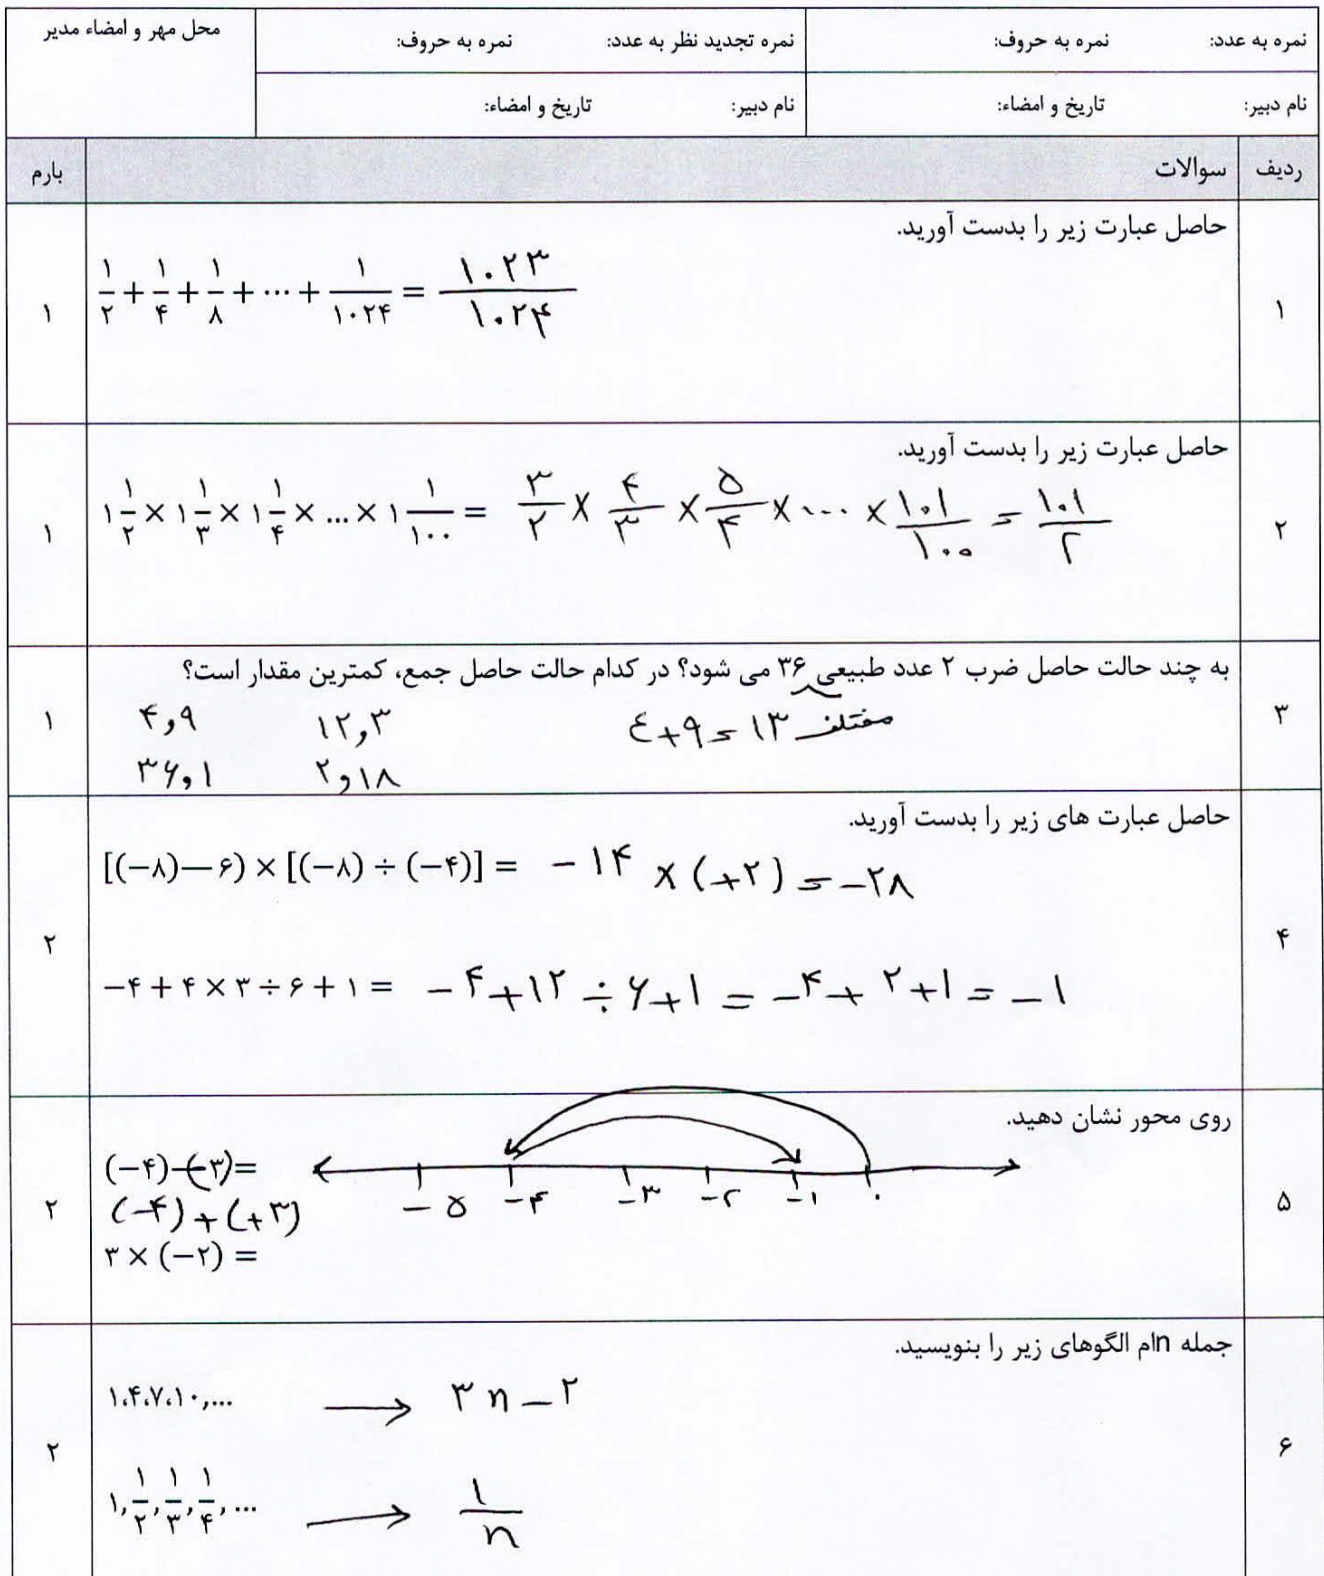 نمره به عدد: نمره به حروف: نمره تجدید نظر به عدد: نمره به حروف: محل مهر و امضاء مدیر
نام دبیر: تاریخ و امضاء: نام دبیر: تاریخ و امضاء:
ردیف سوالات بارم
حاصل عبارت زیر را بدست آورید.
۱ ۱/۲ + ۱/۴ + ۱/۸ + ... + ۱/۱۰۲۴ = ۱۰۲۳/۱۰۲۴ ۱
حاصل عبارت زیر را بدست آورید.
۲ ۱ ۱/۲ × ۱ ۱/۳ × ۱ ۱/۴ × ... × ۱ ۱/۱۰۰ = ۳/۲ × ۴/۳ × ۵/۴ × ... × ۱۰۱/۱۰۰ = ۱۰۱/۲ ۱
به چند حالت حاصل ضرب ۲ عدد طبیعی ۳۶ می شود؟ در کدام حالت حاصل جمع، کمترین مقدار است؟
۳ ۴و۹ ۱۲و۳ ٤+۹=۱۳ مختلف ۱
۳۶و۱ ۲و۱۸
حاصل عبارت های زیر را بدست آورید.
[(−۸)−۶) × [(−۸) ÷ (−۴)] = −۱۴ × (+۲) = −۲۸
۴ ۲
−۴ + ۴ × ۳ ÷ ۶ + ۱ = −۴+۱۲ ÷ ۶+۱ = −۴+۲+۱ = −۱
روی محور نشان دهید.
(−۴)−(−۳)=
۵ (−۴)+(+۳) −۵ −۴ −۳ −۲ −۱ ۰ ۲
۳ × (−۲) =
جمله nام الگوهای زیر را بنویسید.
۱،۴،۷،۱۰,... → ۳n−۲
۶ ۲
۱, ۱/۲, ۱/۳, ۱/۴, ... → ۱/n